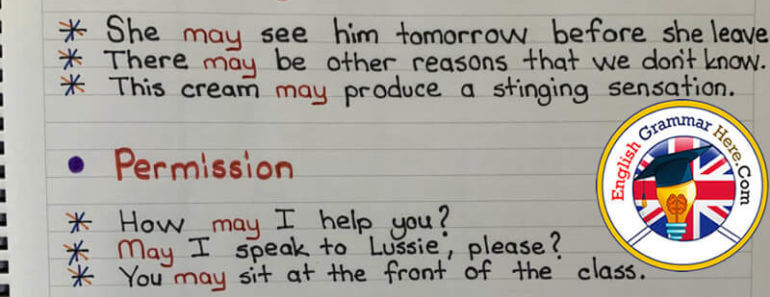 She may see him tomorrow before she leave
There may be other reasons that we don't know.
This cream may produce a stinging sensation.
Permission
How may I help you?
May I speak to Lussie, please?
You may sit at the front of the class.
English Grammar Here.Com